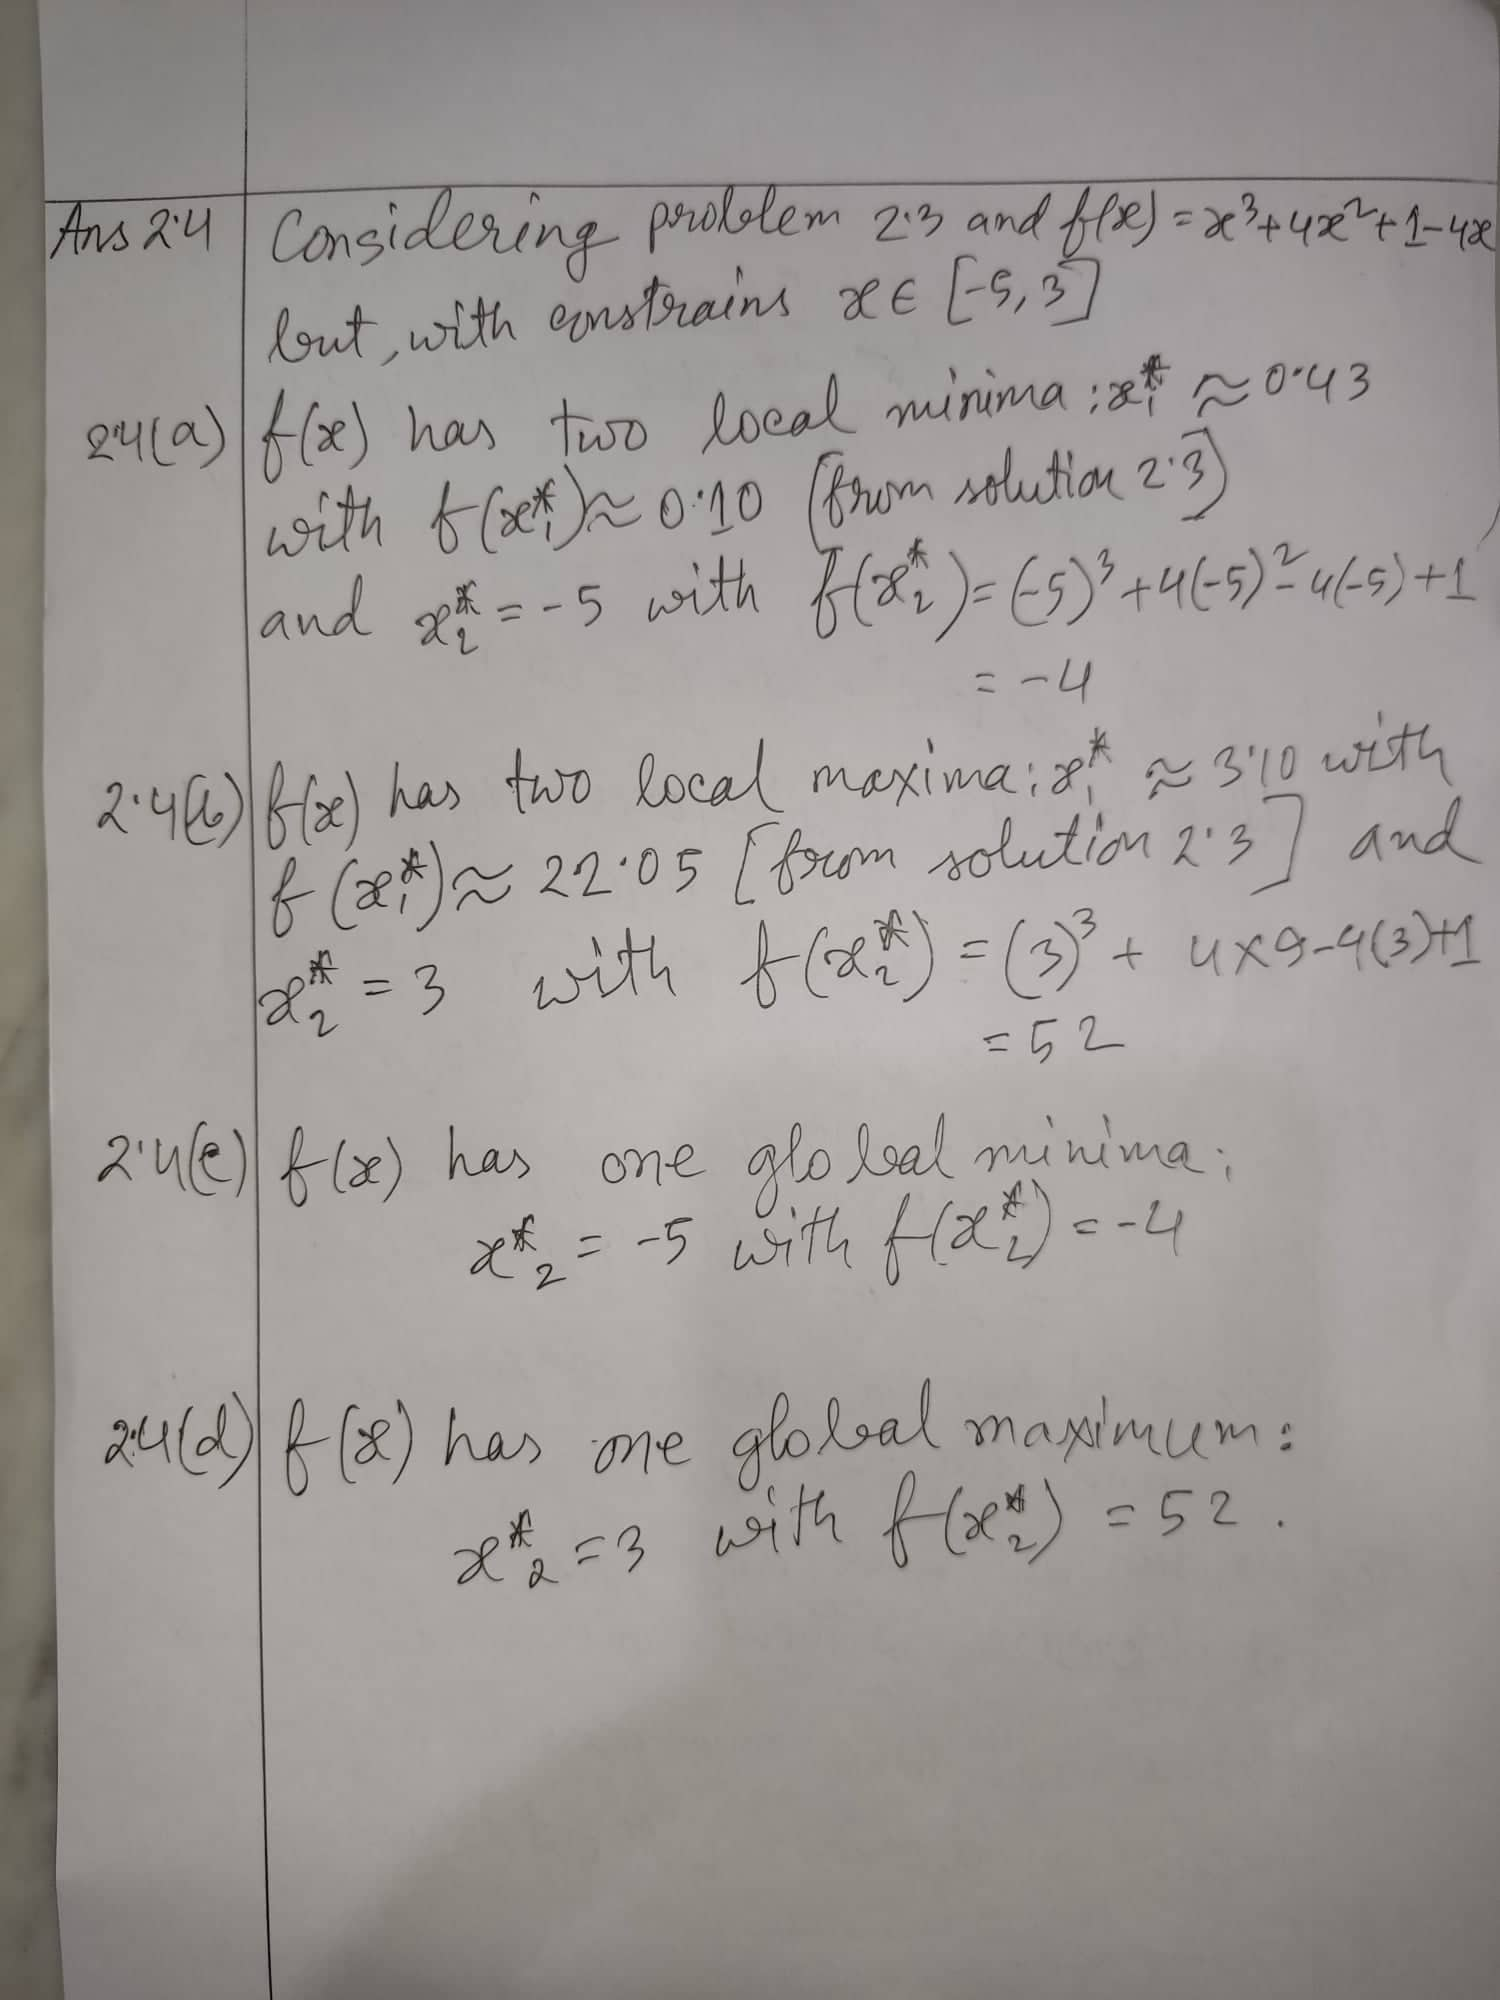 Ans 2.4 Considering problem 2.3 and f(x) = x³+4x²+1-4x
but, with constrains x ∈ [-5, 3]
2.4(a) f(x) has two local minima: x₁* ≈ 0.43
with f(x₁*) ≈ 0.10 (from solution 2.3)
and x₂* = -5 with f(x₂*) = (-5)³ + 4(-5)² - 4(-5) + 1
= -4
2.4(b) f(x) has two local maxima: x₁* ≈ 3.10 with
f(x₁*) ≈ 22.05 [from solution 2.3] and
x₂* = 3 with f(x₂*) = (3)³ + 4×9-4(3)+1
= 52
2.4(c) f(x) has one global minima;
x*₂ = -5 with f(x₂*) = -4
2.4(d) f(x) has one global maximum:
x*₂ = 3 with f(x₂*) = 52.